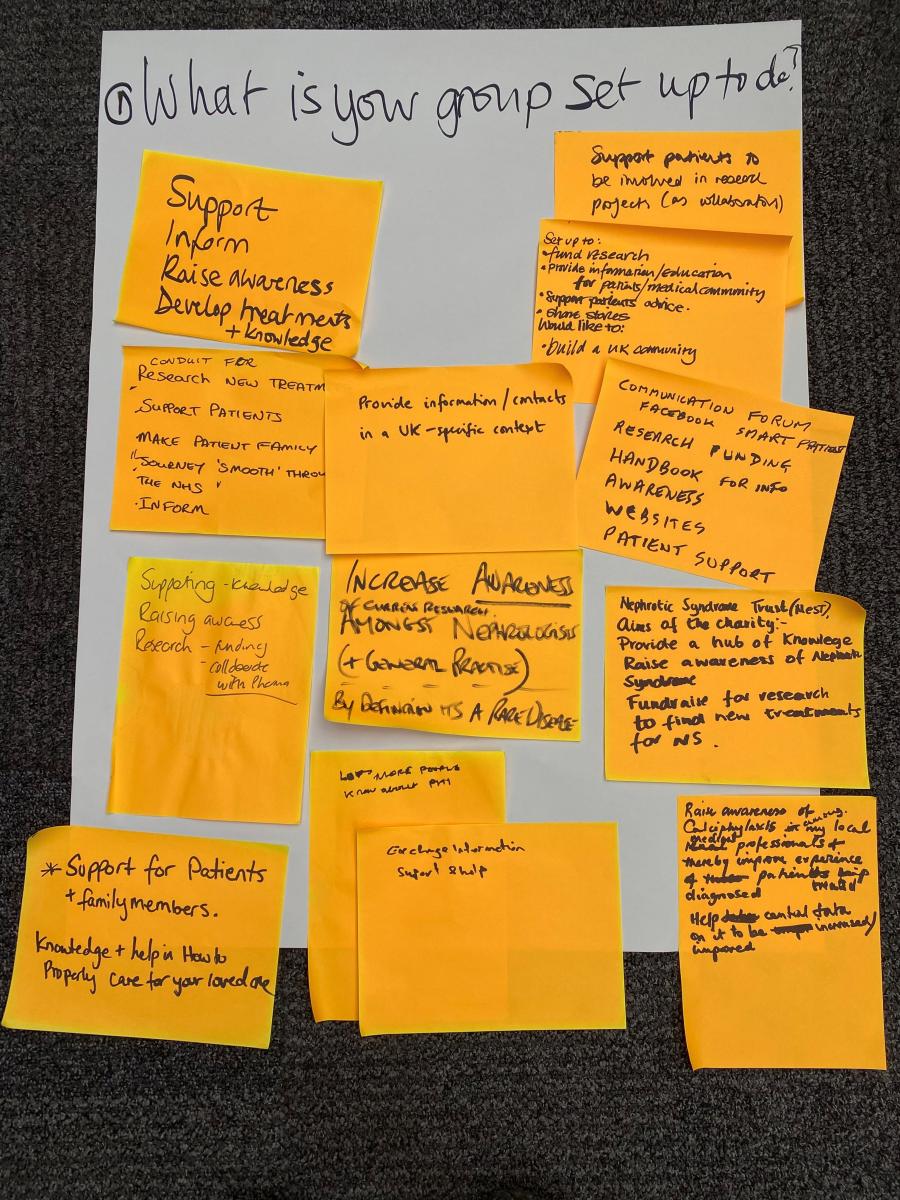 ① What is your group set up to do?
Support
Inform
Raise awareness
Develop treatments
+ knowledge
Support patients to
be involved in research
projects (as collaborators)
Set up to:
• fund research
• provide information/education
for patients/medical community
• Support patients advice.
• share stories
Would like to:
• build a UK community
CONDUIT FOR
Research NEW TREATM
SUPPORT PATIENTS
MAKE PATIENT FAMILY
JOURNEY 'SMOOTH' THROU
THE NHS
• INFORM
Provide information/contacts
in a UK-specific context
COMMUNICATION FORUM
FACEBOOK SMART PATIENT
RESEARCH FUNDING
HANDBOOK FOR INFO
AWARENESS
WEBSITES
PATIENT SUPPORT
Supporting - knowledge
Raising awareness
Research - funding
- collaborate
with Pharma
INCREASE AWARENESS
OF CURRENT RESEARCH
AMONGST NEPHROLOGISTS
(+ GENERAL PRACTISE)
BY DEFINITION IT'S A RARE DISEASE
Nephrotic Syndrome Trust (NeST).
Aims of the charity:-
Provide a hub of Knowlege
Raise awareness of Nephrotic
Syndrome
Fundraise for research
to find new treatments
for NS.
MORE PEOPLE
KNOW ABOUT PH1
Exchange Information
Suport & help
* Support for Patients
+ family members.
Knowledge + help in How to
Properly care for your loved one
Raise awareness of
Calciphylaxis in among my local
medical professionals &
thereby improve experience
of patients being
diagnosed treated
Help central data
on it to be increased/
improved